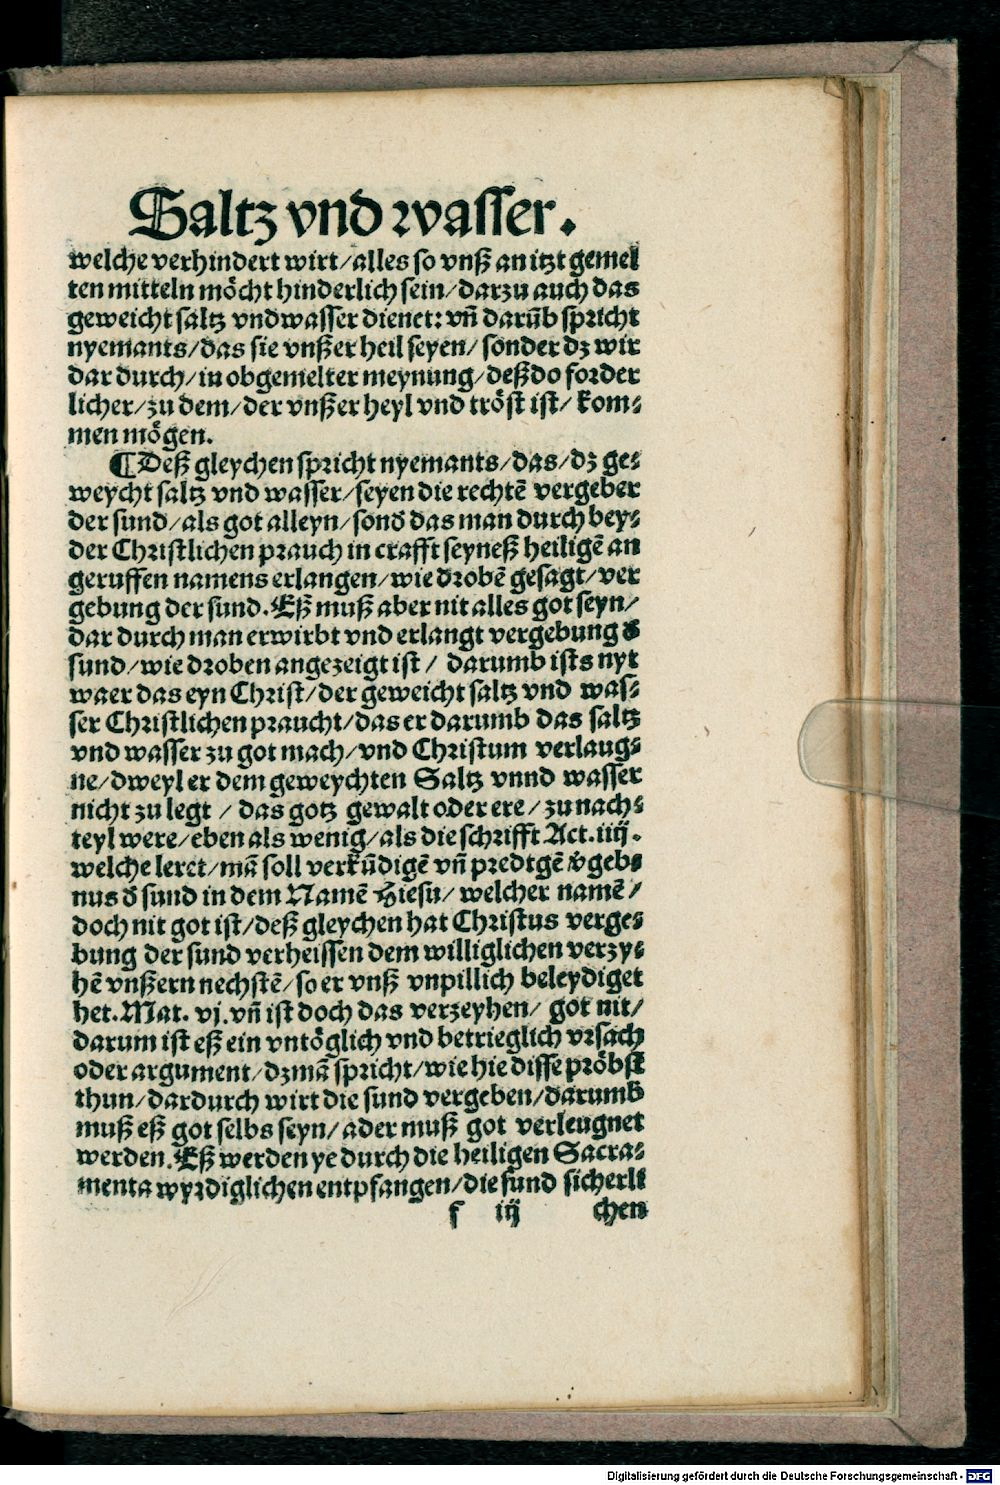 Saltz vnd wasser.
welche verhindert wirt/alles so vnß an itzt gemel
ten mitteln möcht hinderlich sein/darzu auch das
geweicht saltz vnd wasser dienet: vñ darüb spricht
nyemants/das sie vnßer heil seyen/sonder dz wir
dar durch/in obgemelter meynung/deßdo forder
licher/zu dem/der vnßer heyl vnd tröst ist/ kom⸗
men mögen.
¶Deß gleychen spricht nyemants/das/dz ge⸗
weycht saltz vnd wasser/seyen die rechtē vergeber
der sund/als got alleyn/sonđ das man durch bey⸗
der Christlichen prauch in crafft seyneß heiligē an
geruffen namens erlangen/wie drobē gesagt/ver
gebung der sund. Eß muß aber nit alles got seyn/
dar durch man erwirbt vnd erlangt vergebung đ
sund/wie droben angezeigt ist/ darumb ists nyt
waer das eyn Christ/der geweicht saltz vnd was⸗
ser Christlichen praucht/das er darumb das saltz
vnd wasser zu got mach/vnd Christum verlaug⸗
ne/dweyl er dem geweychten Saltz vnnd wasser
nicht zu legt / das gotz gewalt oder ere/ zu nach⸗
teyl were/eben als wenig/als die schrifft Act. iiij.
welche leret/mā soll verkūdigē vñ predtgē v̄geb⸗
nus đ sund in dem Namē Hiesu/ welcher namē/
doch nit got ist/deß gleychen hat Christus verge⸗
bung der sund verheissen dem williglichen verzy⸗
hē vnßern nechstē/so er vnß vnpillich beleydiget
het. Mat. vj. vñ ist doch das verzeyhen/ got nit/
darum ist eß ein vntöglich vnd betrieglich vrsach
oder argument/dzmā spricht/wie hie disse pröbst
thun/dardurch wirt die sund vergeben/darumb
muß eß got selbs seyn/ader muß got verleugnet
werden. Eß werden ye durch die heiligen Sacra⸗
menta wyrdiglichen entpfangen/die sund sicherli
f iij chen
Digitalisierung gefördert durch die Deutsche Forschungsgemeinschaft - DFG